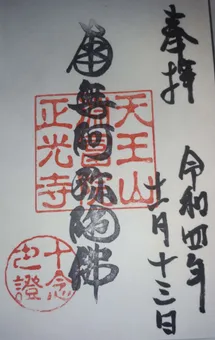 奉拝
令和四年
十一月十三日
南無阿弥陀佛
天王山
正光寺
十念
也證